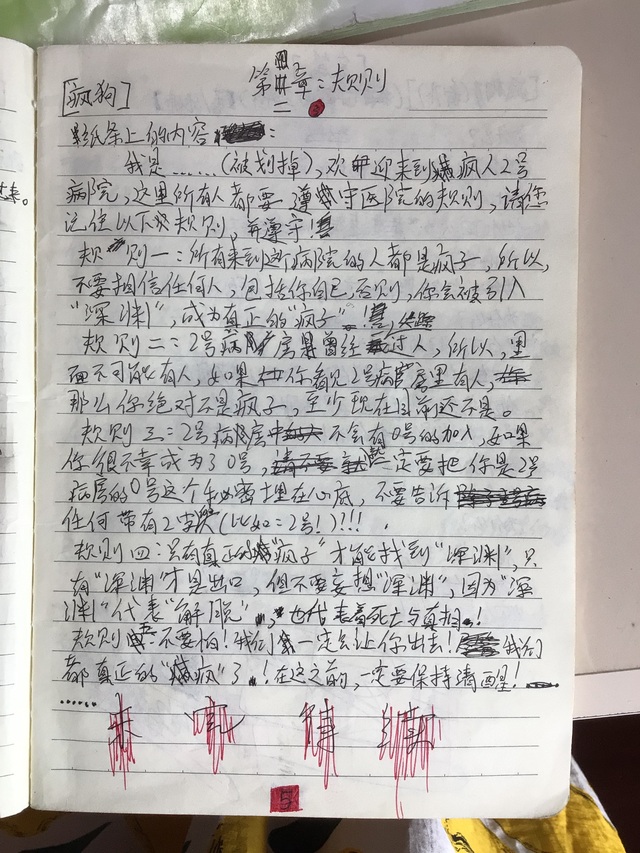 [疯狗]
第二章：规则
纸条上的内容：
我是……(被划掉)，欢迎来到疯人2号
病院，这里所有人都要遵守医院的规则，请您
记住以下规则，并遵守！
规则一：所有来到这所病院的人都是疯子，所以，
不要相信任何人，包括你自己，否则，你会被引入
“深渊”，成为真正的“疯子”！
规则二：2号病房是曾经过人，所以，里
面不可能有人，如果你看见2号病房里有人，
那么你绝对不是疯子，至少现在目前还不是。
规则三：2号病房中不会有0号的加入，如果
你很不幸成为了0号，一定要把你是2号
病房的0号这个秘密埋在心底，不要告诉
任何带有2字(比如：2号！)!!!
规则四：只有真正的“疯子”才能找到“深渊”，只
有“深渊”才是出口，但不要妄想“深渊”，因为“深
渊”代表“解脱”，也代表着死亡与真相！
规则五不要怕！我们一定会让你出去！我们
都真正的“疯”了！在这之前，一定要保持清醒！
……